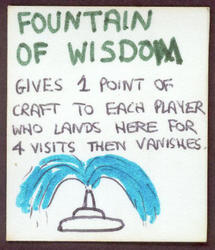 FOUNTAIN
OF WISDOM
GIVES 1 POINT OF
CRAFT TO EACH PLAYER
WHO LANDS HERE FOR
4 VISITS THEN VANISHES.